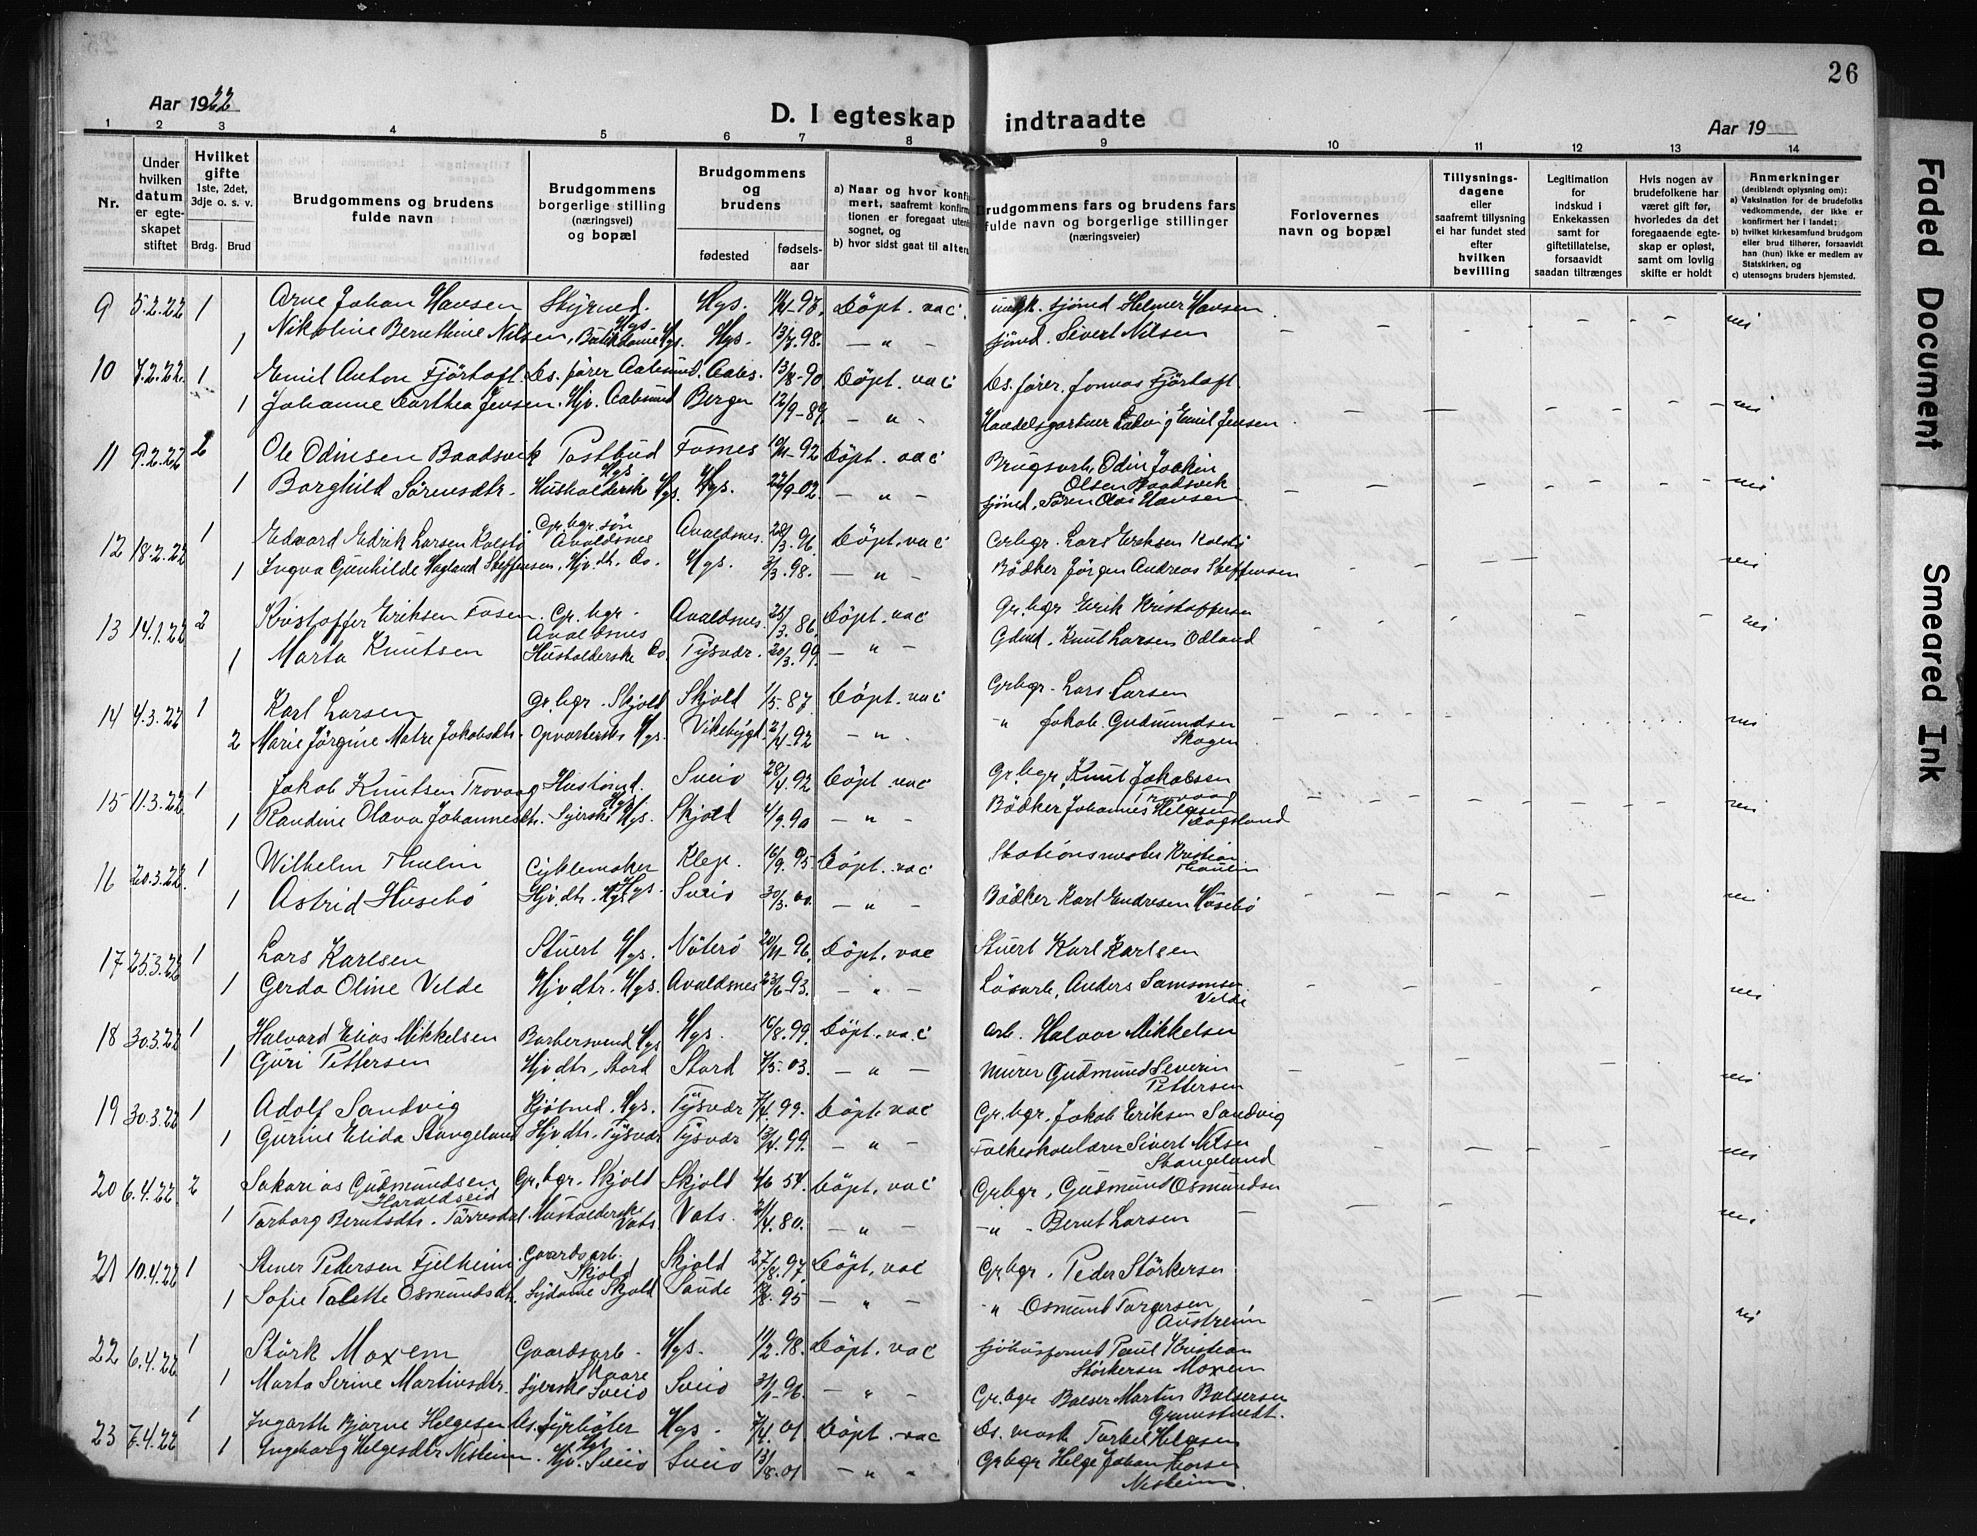 26
Aar 1922
D. I egteskap indtraadte
Aar 19
1 2 3 4 5 6 7 8 9 10 11 12 13 14
Nr.
Under hvilken datum er egteskapet stiftet
Hvilket gifte 1ste, 2det, 3dje o. s. v.
Brdg. Brud
Brudgommens og brudens fulde navn
Brudgommens borgerlige stilling (næringsvei) og bopæl
Brudgommens og brudens
fødested
fødselsaar
a) Naar og hvor konfirmert, saafremt konfirmationen er foregaat utenfor sognet, og
b) hvor sidst gaat til alters
Brudgommens fars og brudens fars fulde navn og borgerlige stillinger (næringsveier)
Forlovernes navn og bopæl
Tillysningsdagene eller saafremt tillysning ei har fundet sted efter hvilken bevilling
Legitimation for indskud i Enkekassen samt for giftetillatelse, forsaavidt saadan tiltrænges
Hvis nogen av brudefolkene har været gift før, hvorledes da det foregaaende egteskap er opløst, samt om lovlig skifte er holdt
Anmerkninger (deriblandt oplysning om):
a) Vaksination for de brudefolks vedkommende, der ikke er konfirmert her i landet;
b) hvilket kirkesamfund brudgom eller brud tilhører, forsaavidt han (hun) ikke er medlem av Statskirken, og
c) utensogns bruders hjemsted.
9 5.2.22 1 Arne Johan Hansen Styrmd. Hgs. Hgs. Döpt. vac. sjömd Helmer Hansen
1 Nikoline Bernthine Nilsen Hgs. Hgs. 13/7.98. — " — sjömd. Sivert Nilsen nei
10 7.2.22. 1 Emil Anton Fjörtoft Ds. förer Aalesund. Aales. 13/8-90 Döpt. vac Ds. förer. Jonas Fjörtoft
1 Johanne Dorthea Jensen. Hjv. Aalesund Bergen 12/9-89. — " — Handelsgartner Ludvig Emil Jensen nei
11 9.2.22 2 Ole Odinsen Baadsvik Postbud Hgs. Fosnes 92 Döpt. vac Brugsarb. Odin Joakin Olsen Baadsvik
1 Borghild Sörensdtr. Husholderske Hgs. Hgs. 22/9-02. — " — sjömd. Sören Olai Hansen nei
12 18.2.22 1 Edvard Edrik Larsen Kolstö Gr. bgr. sön Avaldsnes Avaldsnes. 28/3.96. Döpt. vac Grbgr. Lars Eriksen Kolstö
1 Ingva Gunhilde Hagland Steffensen. Hjv. dtr. Do. Hgs. 3/3.98. — " — Bödker Jörgen Andreas Steffensen nei
13 14.1.22 2 Kristoffer Eriksen Fosen. Gr. bgr. Avaldsnes Avaldsnes. 25/3.86. Döpt. vac Gr. bgr Erik Kristoffersen
1 Marta Knutsen Husholderske Do. Tysvær. 20/3.99. — " — Gdmd. Knut Larsen Odland nei
14 4.3.22 1 Karl Larsen Gr. bgr. Skjold Skjold 1/5.87. Döpt. vac Grbgr. Lars Larsen
2 Marie Jörgine Matre Jakobsdtr. Opvarterske Hgs. Vikebygd. 21/4.92 — " — " Jakob Gudmundsen Skogen nei
15 11.3.22 1 Jakob Knutsen Trovaag Hustömd. Hgs Sveio 28/4.92 Döpt. vac Gr. bgr. Knut Jakobsen Trovaag
1 Randine Olava Johannesdtr. Syerske Hgs. Skjold 4/9.90 — " — Bödker Johannes Helgesen nei
16 20.3.22. 1 Wilhelm Thulin Cyklemaker Hgs. Klep. 16/9.95 Döpt. vac Stationsmester Kristian
1 Astrid Husebö Hjv. dtr. Hgs Sveio 30/3.00. — " — Bödker Karl Endresen Husebö nei
17 25.3.22 1 Lars Karlsen Stuert Hgs. Nöterö 20/11-96. Döpt. vac Stuert Karl Karlsen
1 Gerda Oline Velde Hjv. dtr. Hgs. Avaldsnes 23/6-93. — " — Lösarb. Anders Samsonsen Velde nei
18 30.3.22 1 Halvard Elias Mikkelsen Barbersvend Hgs Hgs. 16/8.99. Döpt. vac arb. Halvor Mikkelsen
1 Guri Pettersen Hjv. dtr. Stord Stord 7/5.03. — " — Murer Gudmund Severin Pettersen nei
19 30.3.22 1 Adolf Sandvig Kjöbmd. Hgs. Tysvær 7/4.99. Döpt. vac Gr. bgr. Jakob Eriksen Sandvig
1 Gurine Elida Stangeland Hjv dtr. Tysvær Tysvær 13/4.99. — " — Folkeskolelærer Sivert Nilsen Stangeland nei
20 6.4.22 2 Sakarias Gudmundsen Haraldseid Gr. bgr. Skjold Skjold 4/6 54. Döpt. vac Gr. bgr. Gudmund Osmundsen
1 Torborg Berntsdtr. Törresdal Husholderske Vats. Vats. 21/4.80. — " — " Bernt Larsen nei
21 10.4.22 1 Stener Pedersen Fjelheim Gaardsarb. Skjold Skjold 27/8.97. Döpt. vac Gr. bgr. Peder Störkersen
1 Sofie Talette Osmundsdtr. Sydame Skjold Sande 95 — " — " Osmund Torgersen Austreim nei
22 6.4.22 1 Störk Moxem Gaardsarb. Skaare Hgs. 11/2.98. Döpt. vac Paul Kristian Störkersen Moxem
1 Marta Serine Martinsdtr. Syerske Sveio Sveio 96. — " — Gr. bgr Balser Martin Balsersen
23 7.4.22 1 Ingarth Bjarne Helgesen Ds. fyrböter Hgs Hgs. 7/4.01 Döpt. vac Ds. mask Torkel Helgesen
1 Ingeborg Helgesdtr Nisteim Hjv. Sveio Sveio 13/8.01 — " — Gr bgr Helge Johan Nisteim.
Faded Document
Smeared Ink